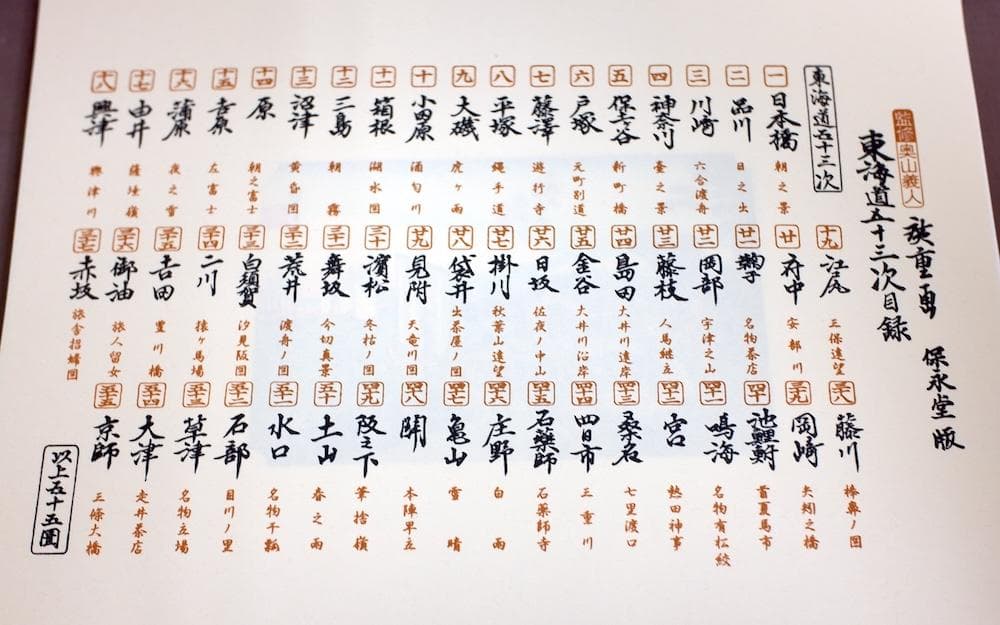 保永堂版
広重画
監修奥山義人
東海道五十三次目録
東海道五十三次
一 日本橋 朝之景
二 品川 日之出
三 川崎 六合渡舟
四 神奈川 臺之景
五 保土谷 新町橋
六 戸塚 元町別道
七 藤澤 遊行寺
八 平塚 縄手道
九 大磯 虎ヶ雨
十 小田原 酒匂川
十一 箱根 湖水図
十二 三島 朝霧
十三 沼津 黄昏図
十四 原 朝之富士
十五 吉原 左富士
十六 蒲原 夜之雪
十七 由井 薩埵嶺
十八 興津 興津川
十九 江尻 三保遠望
廿 府中 安部川
廿一 鞠子 名物茶店
廿二 岡部 宇津之山
廿三 藤枝 人馬継立
廿四 島田 大井川遠岸
廿五 金谷 大井川沿岸
廿六 日坂 佐夜ノ中山
廿七 掛川 秋葉山遠望
廿八 袋井 出茶屋ノ図
廿九 見附 天竜川図
三十 濱松 冬枯ノ図
三十一 舞坂 今切真景
三十二 荒井 渡舟ノ図
三十三 白須賀 汐見阪図
三十四 二川 猿ヶ馬場
三十五 吉田 豊川橋
三十六 御油 旅人留女
三十七 赤坂 旅舎招婦図
三十八 藤川 棒鼻ノ図
三十九 岡崎 矢矧之橋
四十 池鯉鮒 首夏馬市
四十一 鳴海 名物有松絞
四十二 宮 熱田神事
四十三 桑名 七里渡口
四十四 四日市 三重川
四十五 石薬師 石薬師寺
四十六 庄野 白雨
四十七 亀山 雪晴
四十八 関 本陣早立
四十九 阪之下 筆捨嶺
五十 土山 春之雨
五十一 水口 名物干瓢
五十二 石部 目川ノ里
五十三 草津 名物立場
五十四 大津 走井茶店
五十五 京師 三條大橋
以上五十五圖